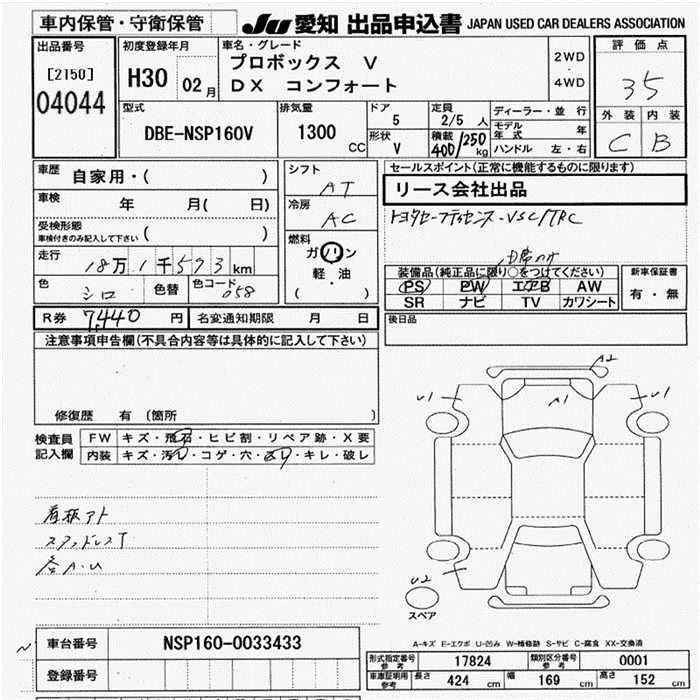 車内保管・守衛保管
JU 愛知 出品申込書 JAPAN USED CAR DEALERS ASSOCIATION
出品番号
[2150]
04044
初度登録年月
H30 02月
車名・グレード
プロボックス V
DX コンフォート
2WD
・
4WD
評価点
35
外装 内装
C B
型式
DBE-NSP160V
排気量
1300 CC
ドア
5
形状
V
定員
2/5 人
積載
400/250 kg
ディーラー・並行
モデル年式
ハンドル 左・右
車歴 自家用・( )
車検 年 月( 日)
受検形態
車検付きのみ記入して下さい ( )
走行 18万1千593km
色 シロ 色替 色コード 058
シフト
AT
冷房
AC
燃料
ガソリン
・
軽・油
( )
R券 7,440 円 名変通知期限 月 日
セールスポイント(正常に機能するものに限ります)
リース会社出品
トヨタセーフティセンス・VSC/TRC
装備品(純正品に限り○をつけてください)
PS PW エアB AW
SR ナビ TV カワシート
新車保証書
有・無
後日品
注意事項申告欄(不具合内容等は具体的に記入して下さい)
修復歴 有 (箇所 )
検査員記入欄
FW キズ・飛石・ヒビ割・リペア跡・X要
内装 キズ・汚レ・コゲ・穴・スレ・キレ・破レ
看板アト
スタッドレスT
各A.U
A2
U1 A1 U1
U2
スペア
A-キズ E-エクボ U-凹み W-補修跡 S-サビ C-腐食 XX-交換済
車台番号 NSP160-0033433
登録番号
形式指定番号 参考 17824 類別区分番号 参考 0001
車庫証明用 参考 長さ 424 cm 幅 169 cm 高さ 152 cm